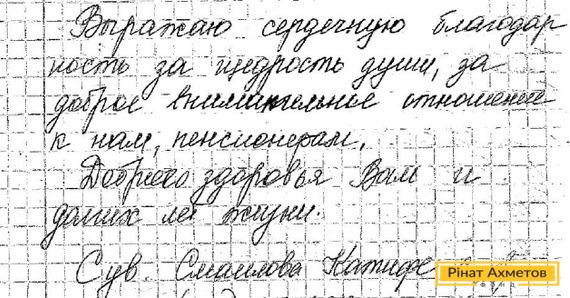 Выражаю сердечную благодар
ность за щедрость души, за
доброе внимательное отношение
к нам, пенсионерам.
Доброго здоровья Вам и
долгих лет жизни.
Сув. Смаилова
Рінат Ахметов